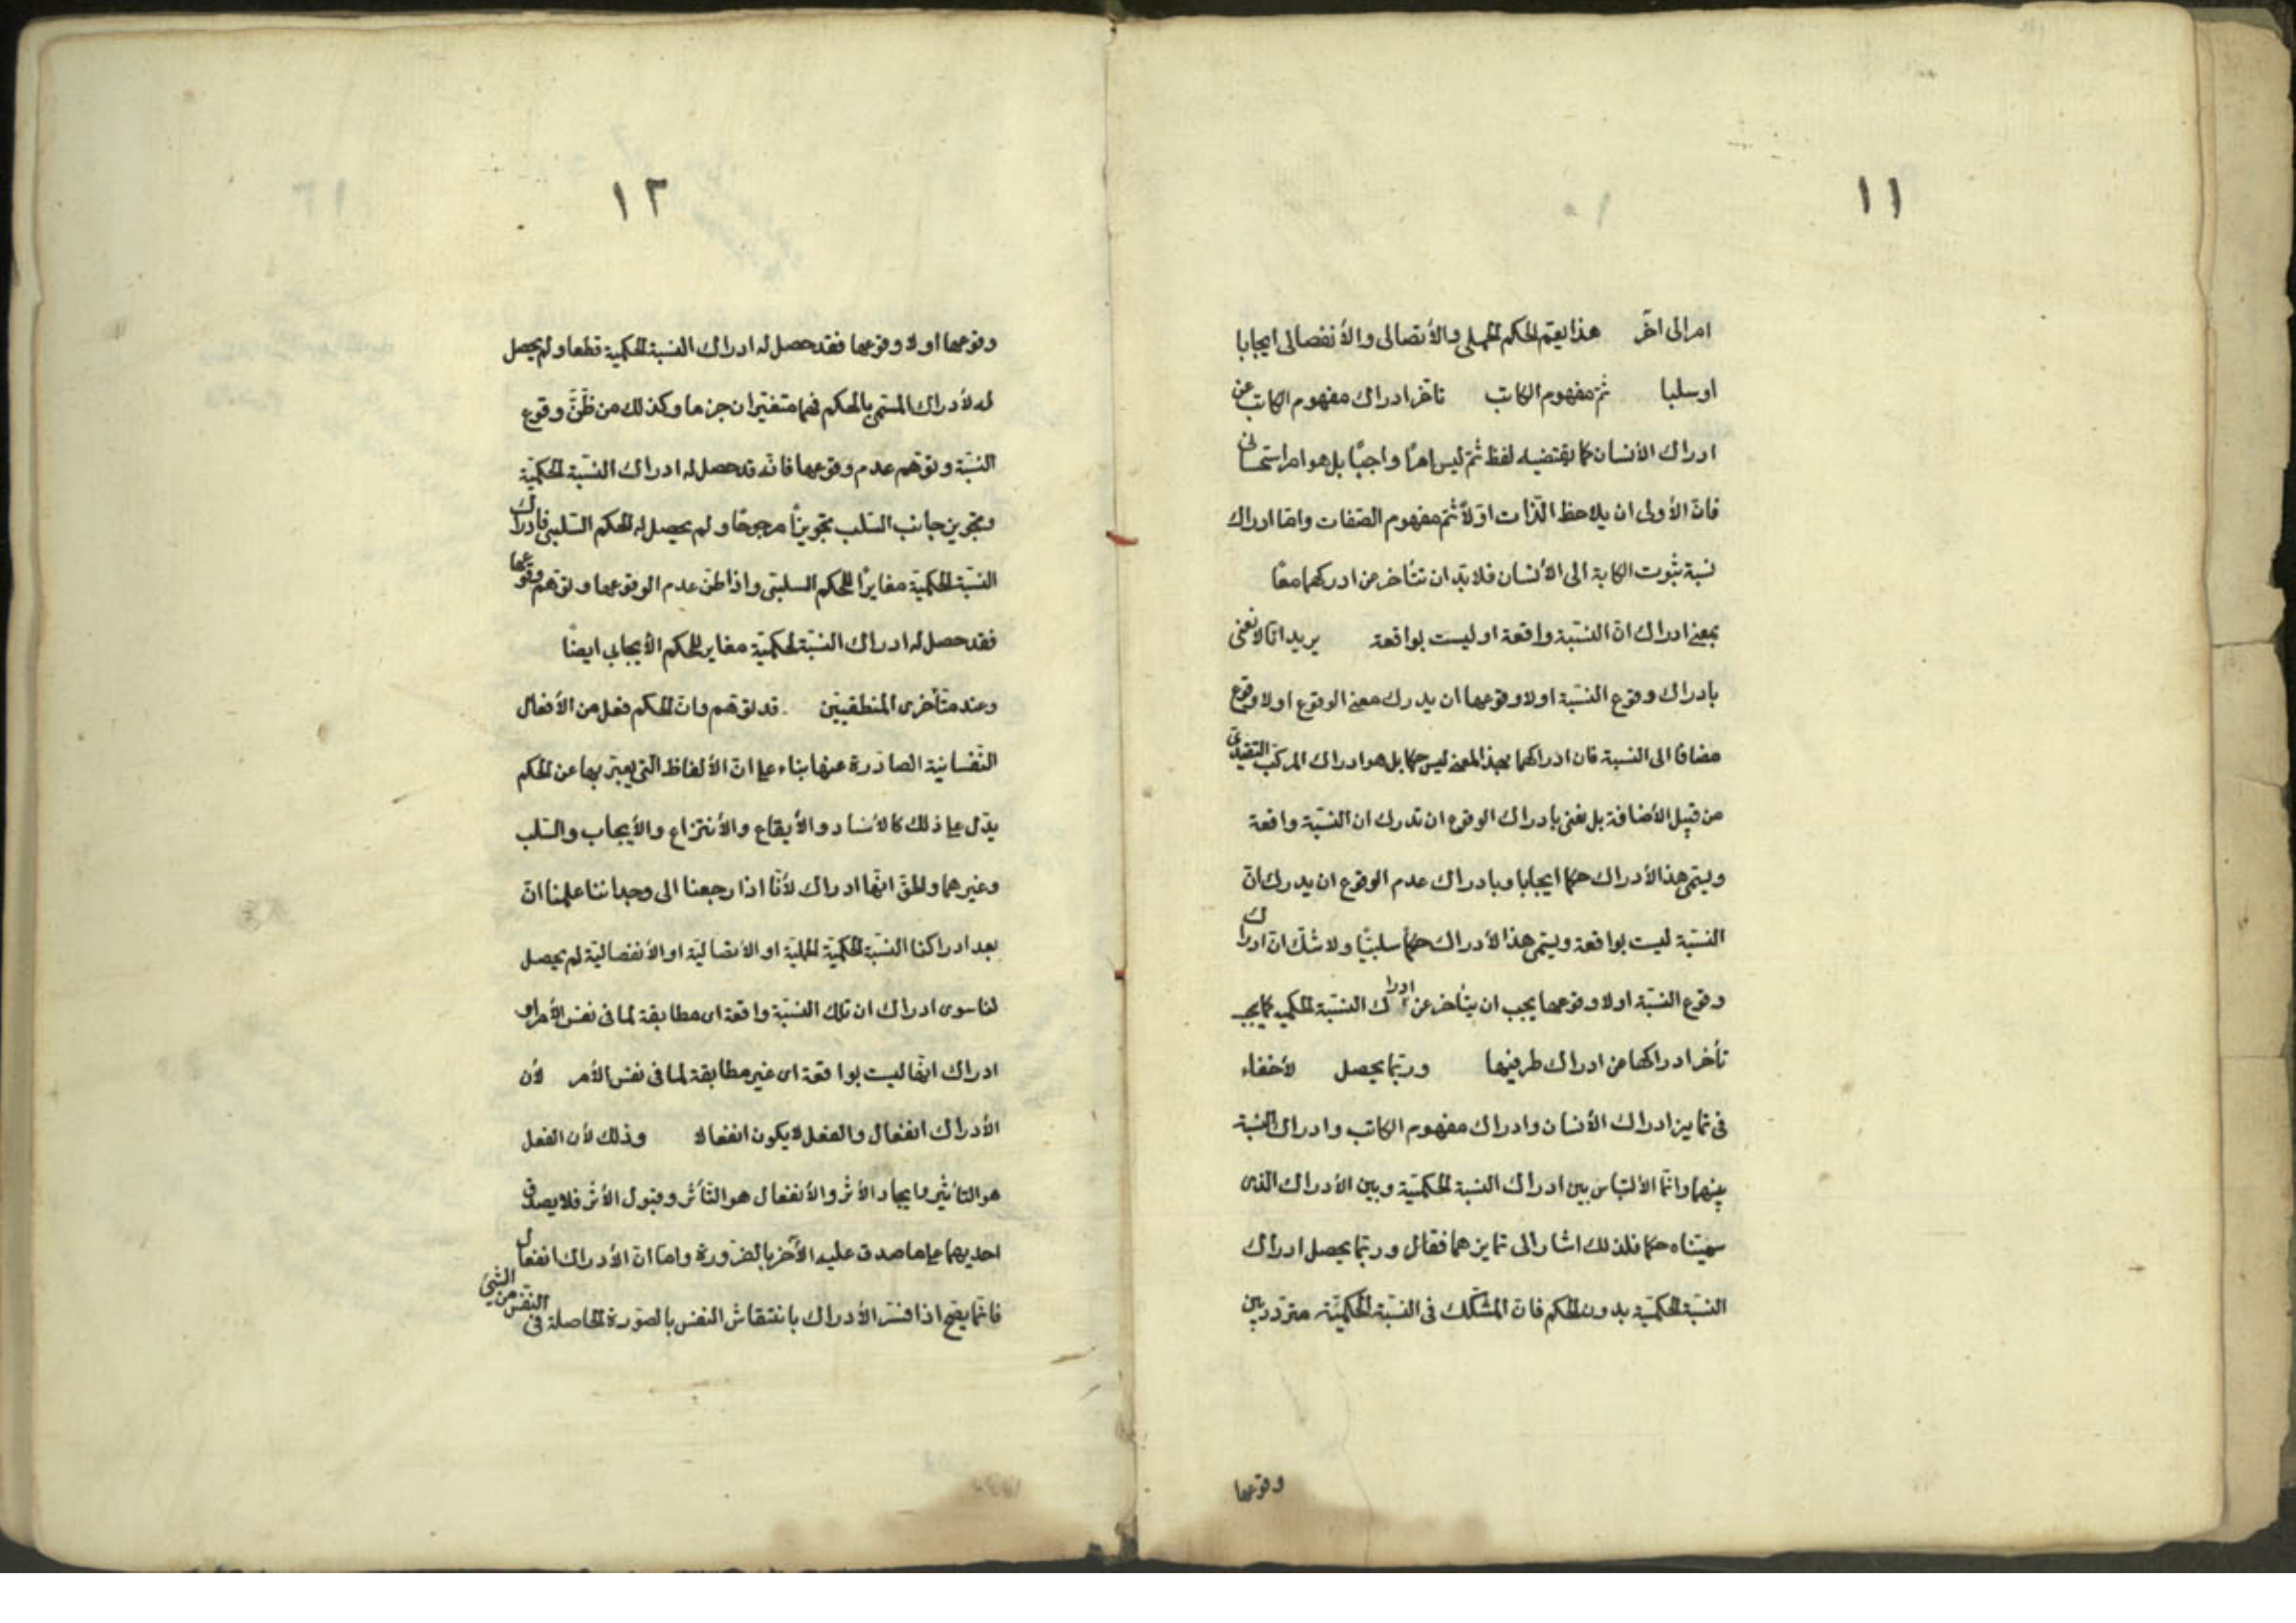 ١١
امرالى اخر هذا يعم الحكم الحملى والأتصالى والأنفصالى ايجابا
اوسلبا ثم مفهوم الكاتب تأخر ادراك مفهوم الكاتب عن
ادراك الأنسان كما يقتضيه لفظ ثم ليس امرا واجبا بل هو امر استحسانى
فان الأولى ان يلاحظ الذات اولا ثم مفهوم الصفات واما ادراك
نسبة ثبوت الكتابة الى الأنسان فلابد ان تتأخر عن ادركهما معا
بمعنى ادراك ان النسبة واقعة او ليست بواقعة يريد انا لانعنى
بادراك وقوع النسبة اولاوقوعها ان يدرك معنى الوقوع اولاوقوع
مضافا الى النسبة فان ادراكهما بهذا المعنى ليس حكما بل هو ادراك المركب التقييدى
من قبيل الأضافة بل نعنى بادراك الوقوع ان تدرك ان النسبة واقعة
ويسمى هذا الأدراك حكما ايجابا وبادراك عدم الوقوع ان يدرك ان
النسبة ليست بواقعة ويسمى هذا الأدراك حكما سلبيا ولاشك ان ادراك
وقوع النسبة اولاوقوعها يجب ان يتأخر عن ادراك النسبة الحكمية كما يجب
تأخر ادراكها عن ادراك طرفيها وربما يحصل لأخفاء
فى تمايز ادراك الأنسان وادراك مفهوم الكاتب وادراك النسبة
بينهما وانما الألتباس بين ادراك النسبة الحكمية وبين الأدراك الذى
سميناه حكما فلذلك اشار الى تمايزهما فقال وربما يحصل ادراك
النسبة الحكمية بدون الحكم فان المشكك فى النسبة الحكمية متردد بين
وقوعها
١٢
وقوعها اولاوقوعها فقد حصل له ادراك النسبة الحكمية قطعا ولم يحصل
له لأدراك المسمى بالحكم فهما متغيران جزما وكذلك من ظن وقوع
النسبة وتوهم عدم وقوعها فانه قد حصل له ادراك النسبة الحكمية
وتجويز جانب السلب تجويزا مرجوحا ولم يحصل له الحكم السلبى فادراك
النسبة الحكمية مغايرا للحكم السلبى واذا ظن عدم الوقوعها وتوهم وقوعها
فقد حصل له ادراك النسبة الحكمية مغاير للحكم الأيجابى ايضا
وعند متأخرى المنطقيين قد توهم وان الحكم فعل من الأفعال
النفسانية الصادرة عنها بناء على ان الألفاظ التى يعبر بها عن الحكم
يدل على ذلك كالأسناد والأيقاع والأنتزاع والأيجاب والسلب
وغيرهما والحق انها ادراك لأنا اذا رجعنا الى وجداننا علمنا ان
بعد ادراكنا النسبة الحكمية الحملية او الأتصالية او الأنفصالية لم يحصل
لنا سوى ادراك ان تلك النسبة واقعة اى مطابقة لما فى نفس الأمر او
ادراك انها ليست بواقعة اى غير مطابقة لما فى نفس الأمر لأن
الأدراك انفعال والفعل لايكون انفعالا وذلك لأن الفعل
هو التأثير وايجاد الأثر والأنفعال هو التأثر وقبول الأثر فلا يصدق
احديهما على ما صدق عليه الأخر بالضرورة واما ان الأدراك انفعال
فانما يصح اذا فسر الأدراك بانتقاش النفس بالصورة الحاصلة فى النفس من الشئ